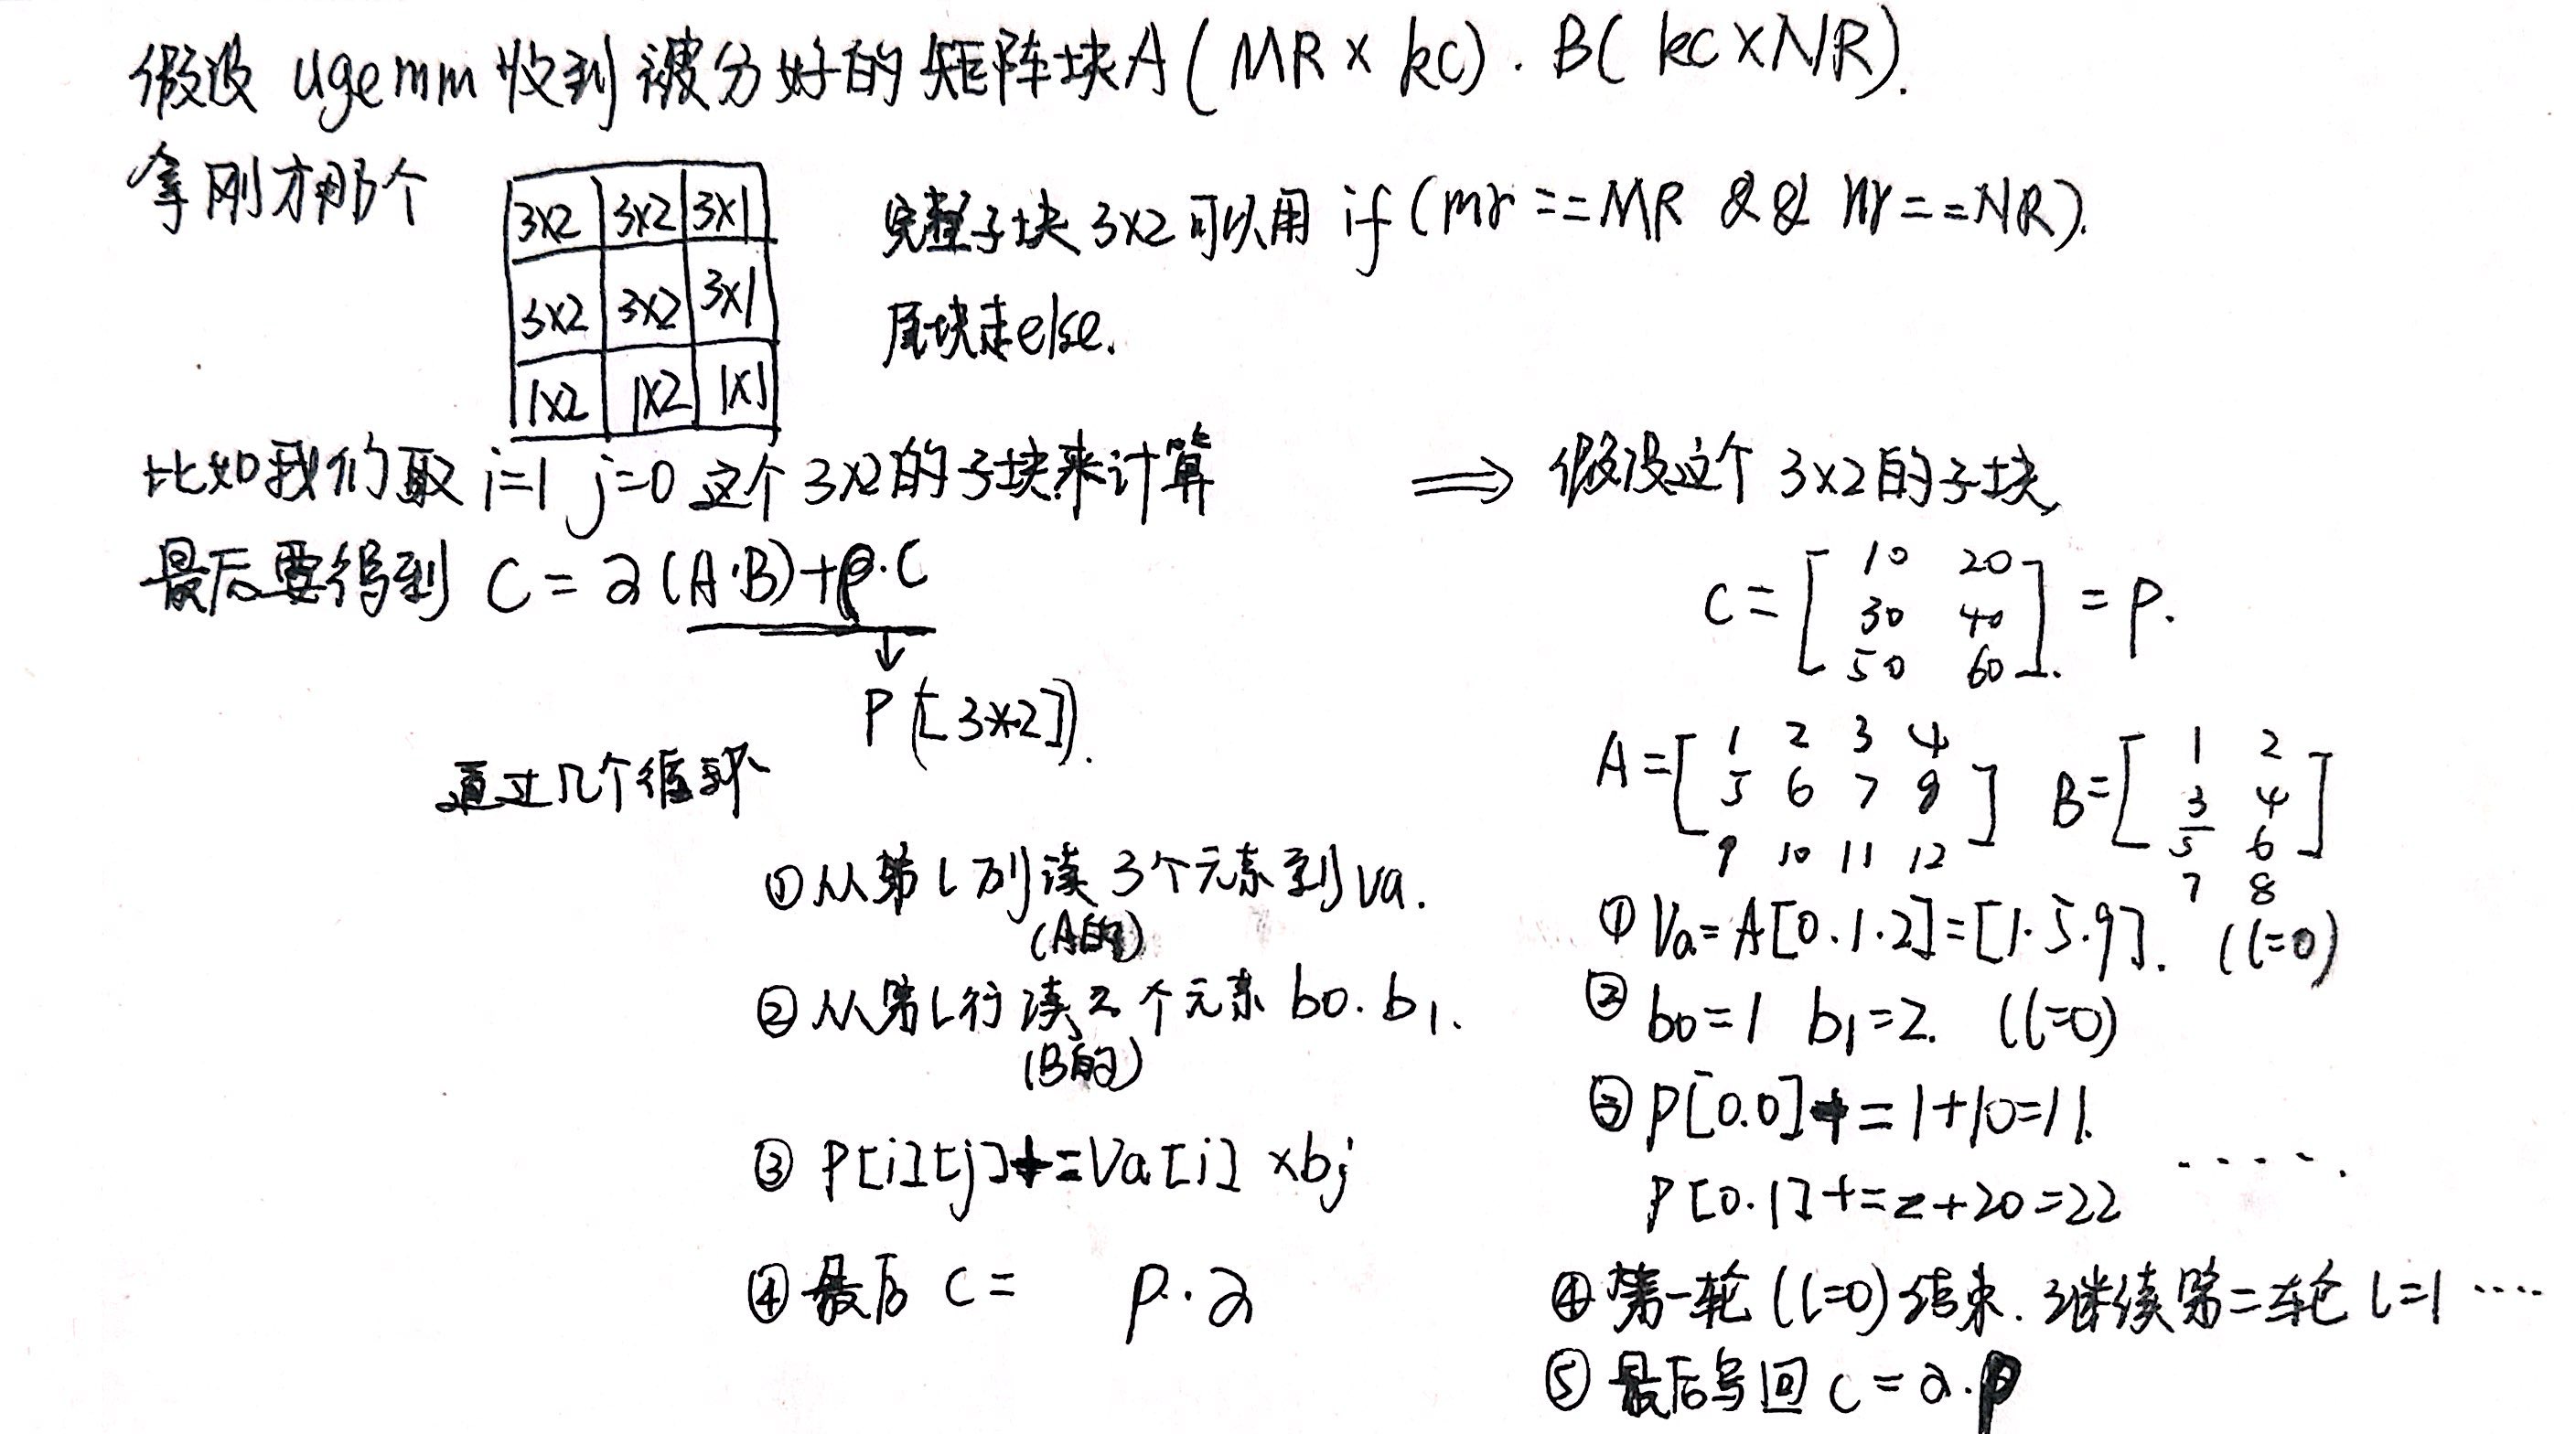 假设 ugemm 收到被分好的矩阵块A(MR×kc)·B(kc×NR).
拿刚才那个
3×2 3×2 3×1
3×2 3×2 3×1
1×2 1×2 1×1
完整子块 3×2 可以用 if(mr==MR && nr==NR).
尾块走else.
比如我们取 i=1 j=0 这个 3×2的子块来计算
最后要得到 C = α(A·B)+β·C
P([3*2]).
通过几个循环
①从第l列读 3个元素到va.
(A的)
②从第l行读2个元素 b0. b1.
(B的)
③ P[i][j]+=Va[i] ×bj
④最后 C= P·α
⟹ 假设这个 3×2的子块,
C=[10 20
30 40
50 60] = P.
A=[1 2 3 4
5 6 7 8
9 10 11 12]
B=[1 2
3 4
5 6
7 8]
① Va=A[0.1.2]=[1.5.9]. (l=0)
② b0=1 b1=2. (l=0)
③ P[0.0]+=1+10=11.
P[0.1]+=2+20=22 .....
④第一轮(l=0)结束.继续第二轮 l=1 ....
⑤ 最后写回 C=α·P